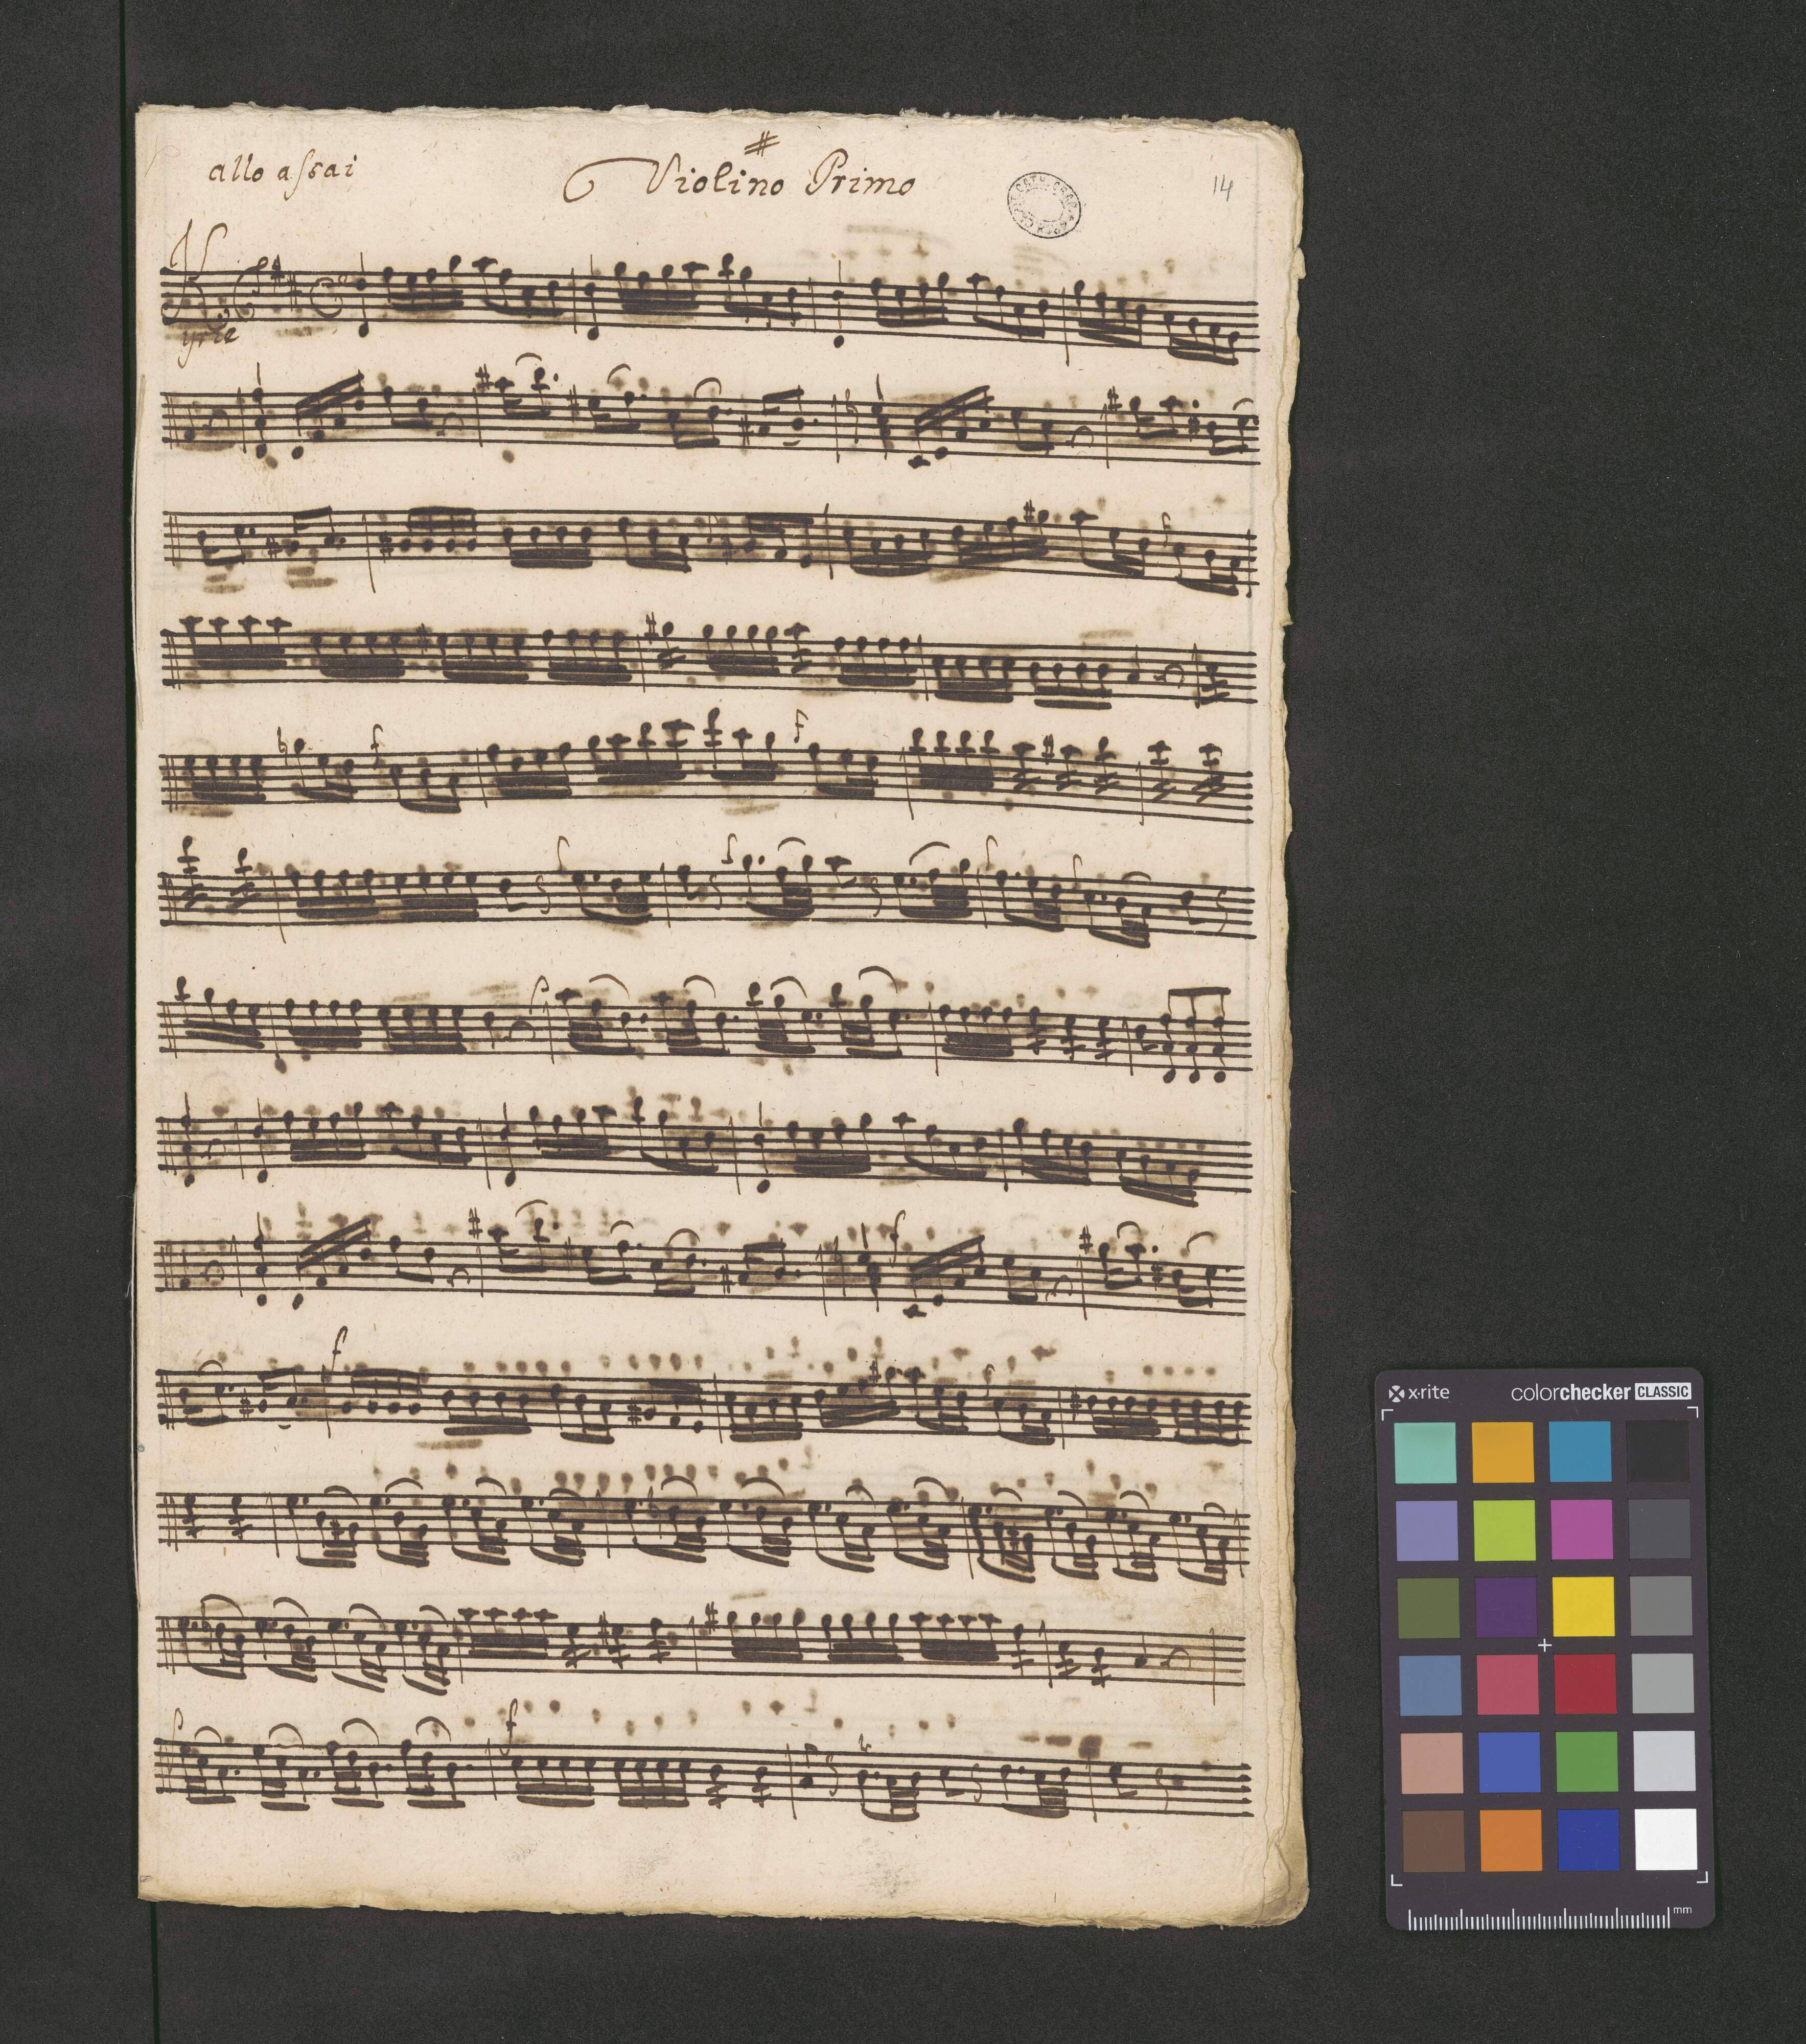 #
allo assai
Violino Primo
14
Kyrie
f
f
f
f
f
p
f
f
f
p
f
x-rite
colorchecker CLASSIC
mm